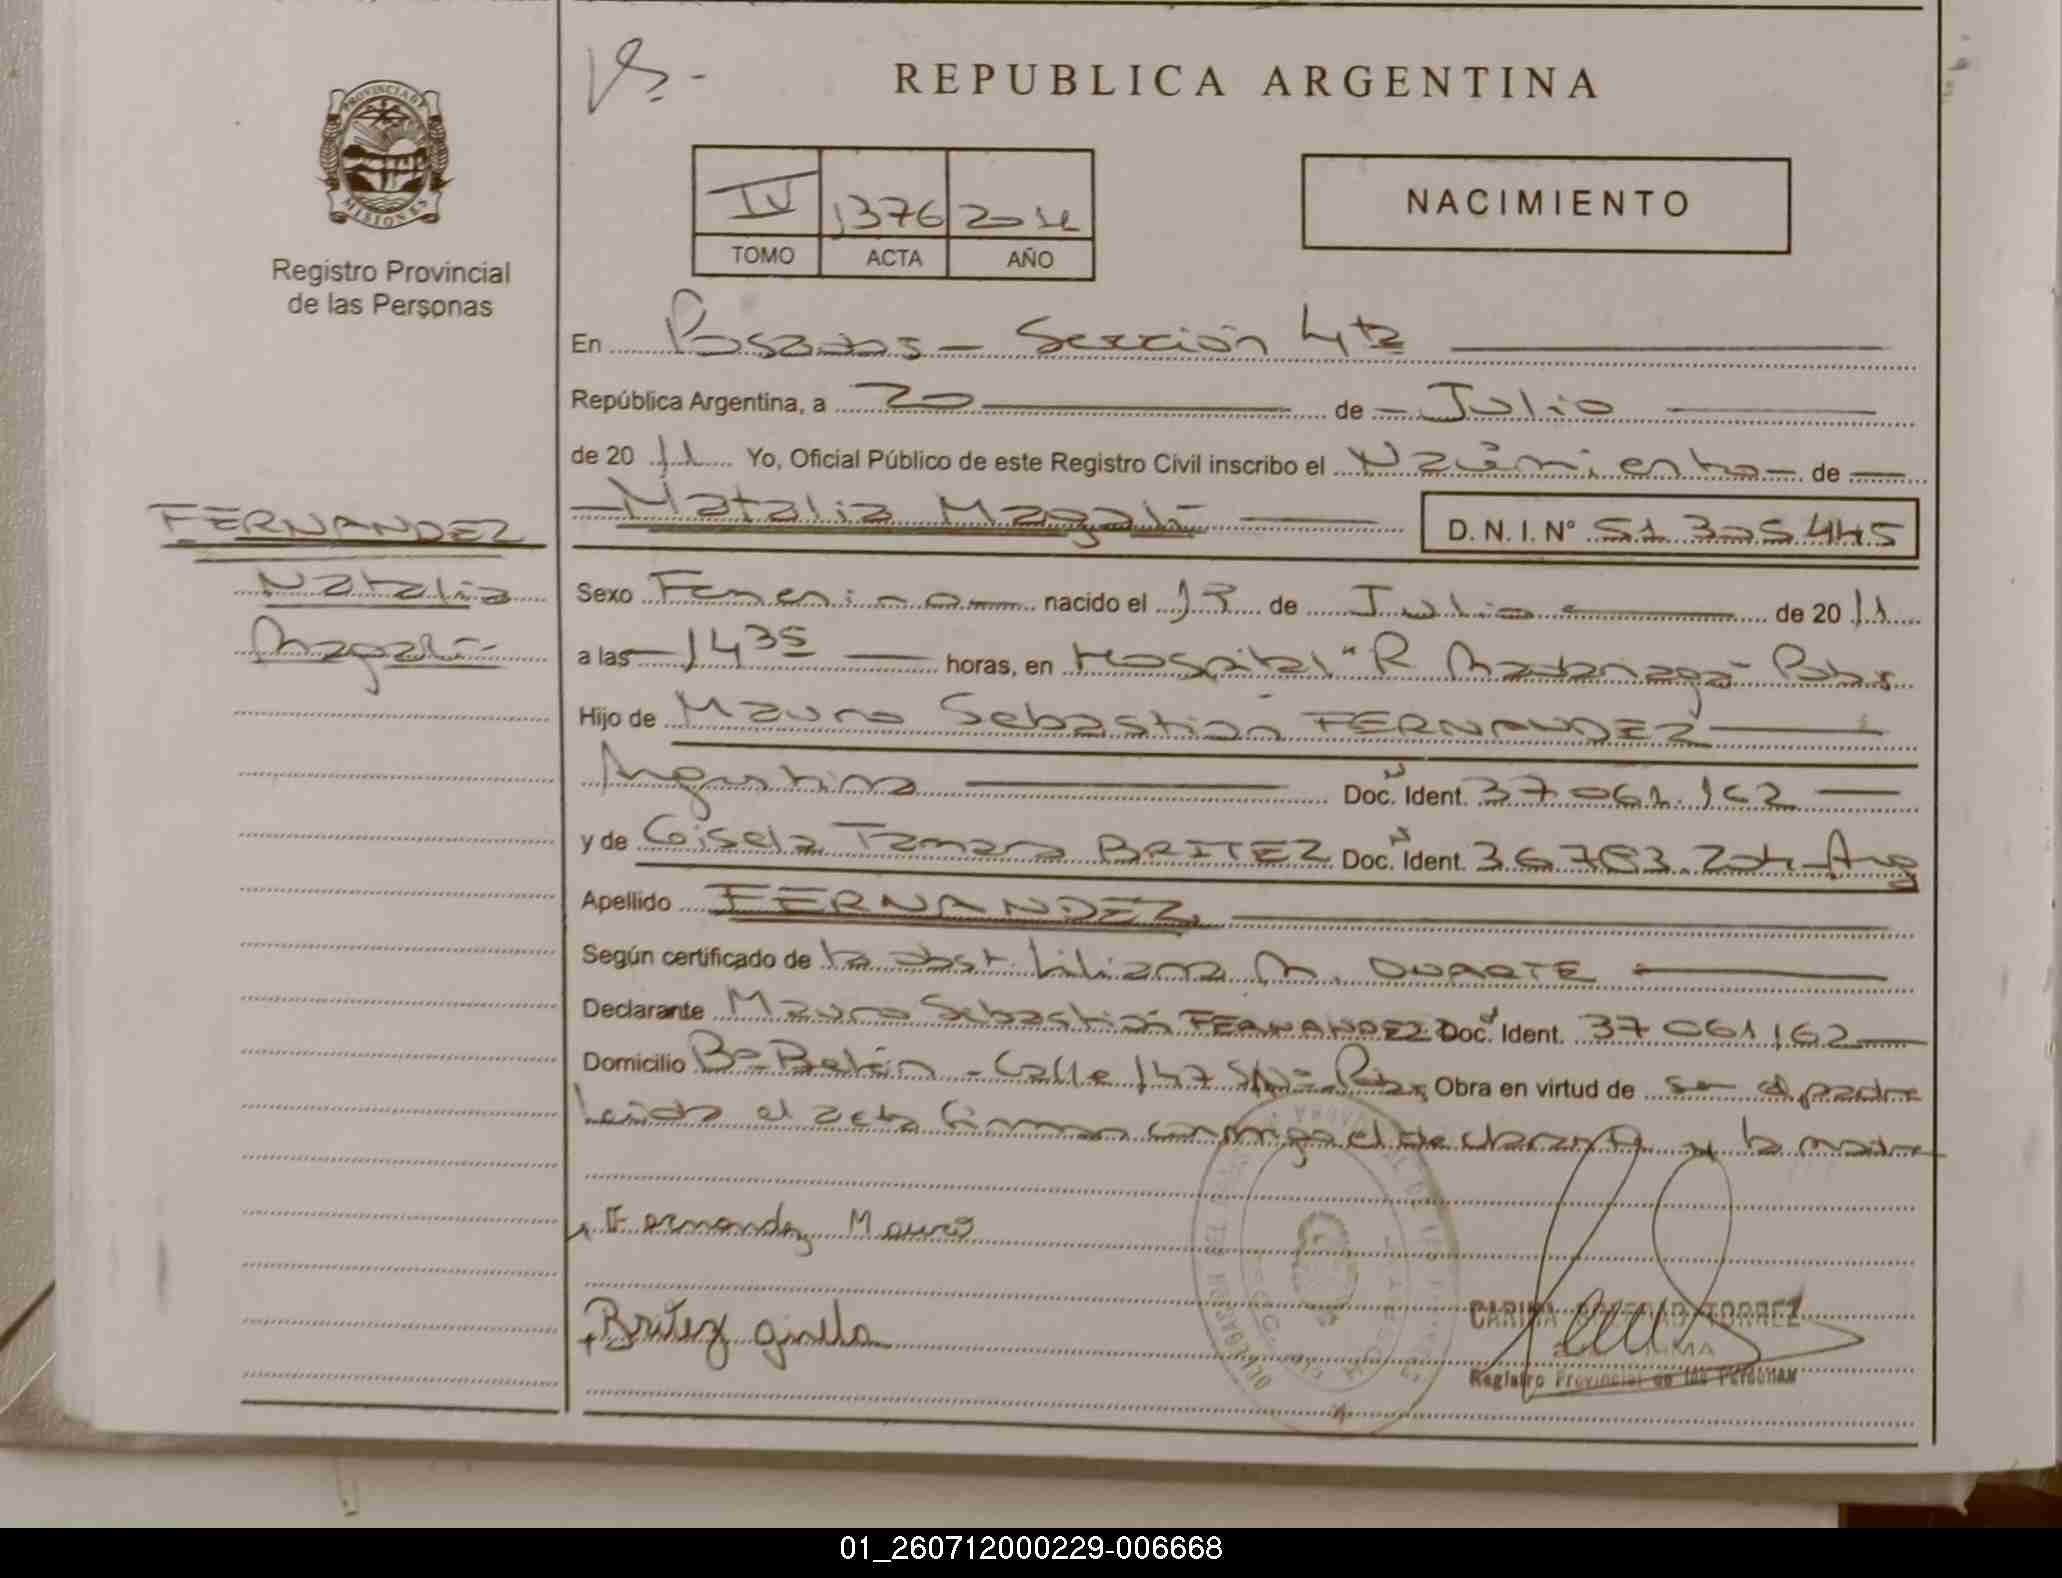 REPUBLICA ARGENTINA
PROVINCIA DE
MISIONES
Registro Provincial
de las Personas
IV 1376 2011
TOMO ACTA AÑO
NACIMIENTO
En Posadas - Sección 4ta
República Argentina, a 20 de Julio
de 20 11 Yo, Oficial Público de este Registro Civil inscribo el Nacimiento de
Natalia Magalí D. N. I. N° 51 305 445
FERNANDEZ
Natalia
Magalí
Sexo Femenino nacido el 13 de Julio de 20 11
a las 14 35 horas, en Hospital "R Madariaga" Pdas
Hijo de Mauro Sebastián FERNANDEZ
Argentino Doc. Ident. 37 061.162
y de Gisela Tamara BRITEZ Doc. Ident. 36 763 204 Arg
Apellido FERNANDEZ
Según certificado de la obst. Liliana M. DUARTE
Declarante Mauro Sebastián FERNANDEZ Doc. Ident. 37 061 162
Domicilio Bº Belén - Calle 147 S/Nº Pdas Obra en virtud de ser el padre
Leída el acta firman conmigo el declarante y la madre
Fernandez Mauro
Britez gisela
CARINA TORREZ
Registro Provincial de las Personas
01_260712000229-006668